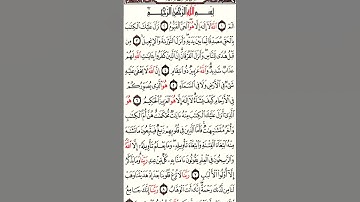 بِسْمِ اللَّهِ الرَّحْمَٰنِ الرَّحِيمِ
الٓمٓ ١ اللَّهُ لَا إِلَٰهَ إِلَّا هُوَ الْحَيُّ الْقَيُّومُ ٢ نَزَّلَ عَلَيْكَ الْكِتَٰبَ
بِالْحَقِّ مُصَدِّقًا لِمَا بَيْنَ يَدَيْهِ وَأَنْزَلَ التَّوْرَىٰةَ وَالْإِنْجِيلَ ٣
مِنْ قَبْلُ هُدًى لِلنَّاسِ وَأَنْزَلَ الْفُرْقَانَ إِنَّ الَّذِينَ كَفَرُوا بِآيَٰتِ اللَّهِ لَهُمْ
عَذَابٌ شَدِيدٌ وَاللَّهُ عَزِيزٌ ذُو انْتِقَامٍ ٤ إِنَّ اللَّهَ لَا يَخْفَىٰ عَلَيْهِ
شَيْءٌ فِي الْأَرْضِ وَلَا فِي السَّمَاءِ ٥ هُوَ الَّذِي يُصَوِّرُكُمْ
فِي الْأَرْحَامِ كَيْفَ يَشَاءُ لَا إِلَٰهَ إِلَّا هُوَ الْعَزِيزُ الْحَكِيمُ ٦
هُوَ الَّذِي أَنْزَلَ عَلَيْكَ الْكِتَٰبَ مِنْهُ آيَٰتٌ مُحْكَمَٰتٌ هُنَّ أُمُّ الْكِتَٰبِ
وَأُخَرُ مُتَشَٰبِهَٰتٌ فَأَمَّا الَّذِينَ فِي قُلُوبِهِمْ زَيْغٌ فَيَتَّبِعُونَ مَا تَشَٰبَهَ
مِنْهُ ابْتِغَاءَ الْفِتْنَةِ وَابْتِغَاءَ تَأْوِيلِهِ وَمَا يَعْلَمُ تَأْوِيلَهُ إِلَّا اللَّهُ
وَالرَّٰسِخُونَ فِي الْعِلْمِ يَقُولُونَ آمَنَّا بِهِ كُلٌّ مِنْ عِنْدِ رَبِّنَا وَمَا يَذَّكَّرُ
إِلَّا أُولُوا الْأَلْبَٰبِ ٧ رَبَّنَا لَا تُزِغْ قُلُوبَنَا بَعْدَ إِذْ هَدَيْتَنَا وَهَبْ
لَنَا مِنْ لَدُنْكَ رَحْمَةً إِنَّكَ أَنْتَ الْوَهَّابُ ٨ رَبَّنَا إِنَّكَ جَامِعُ